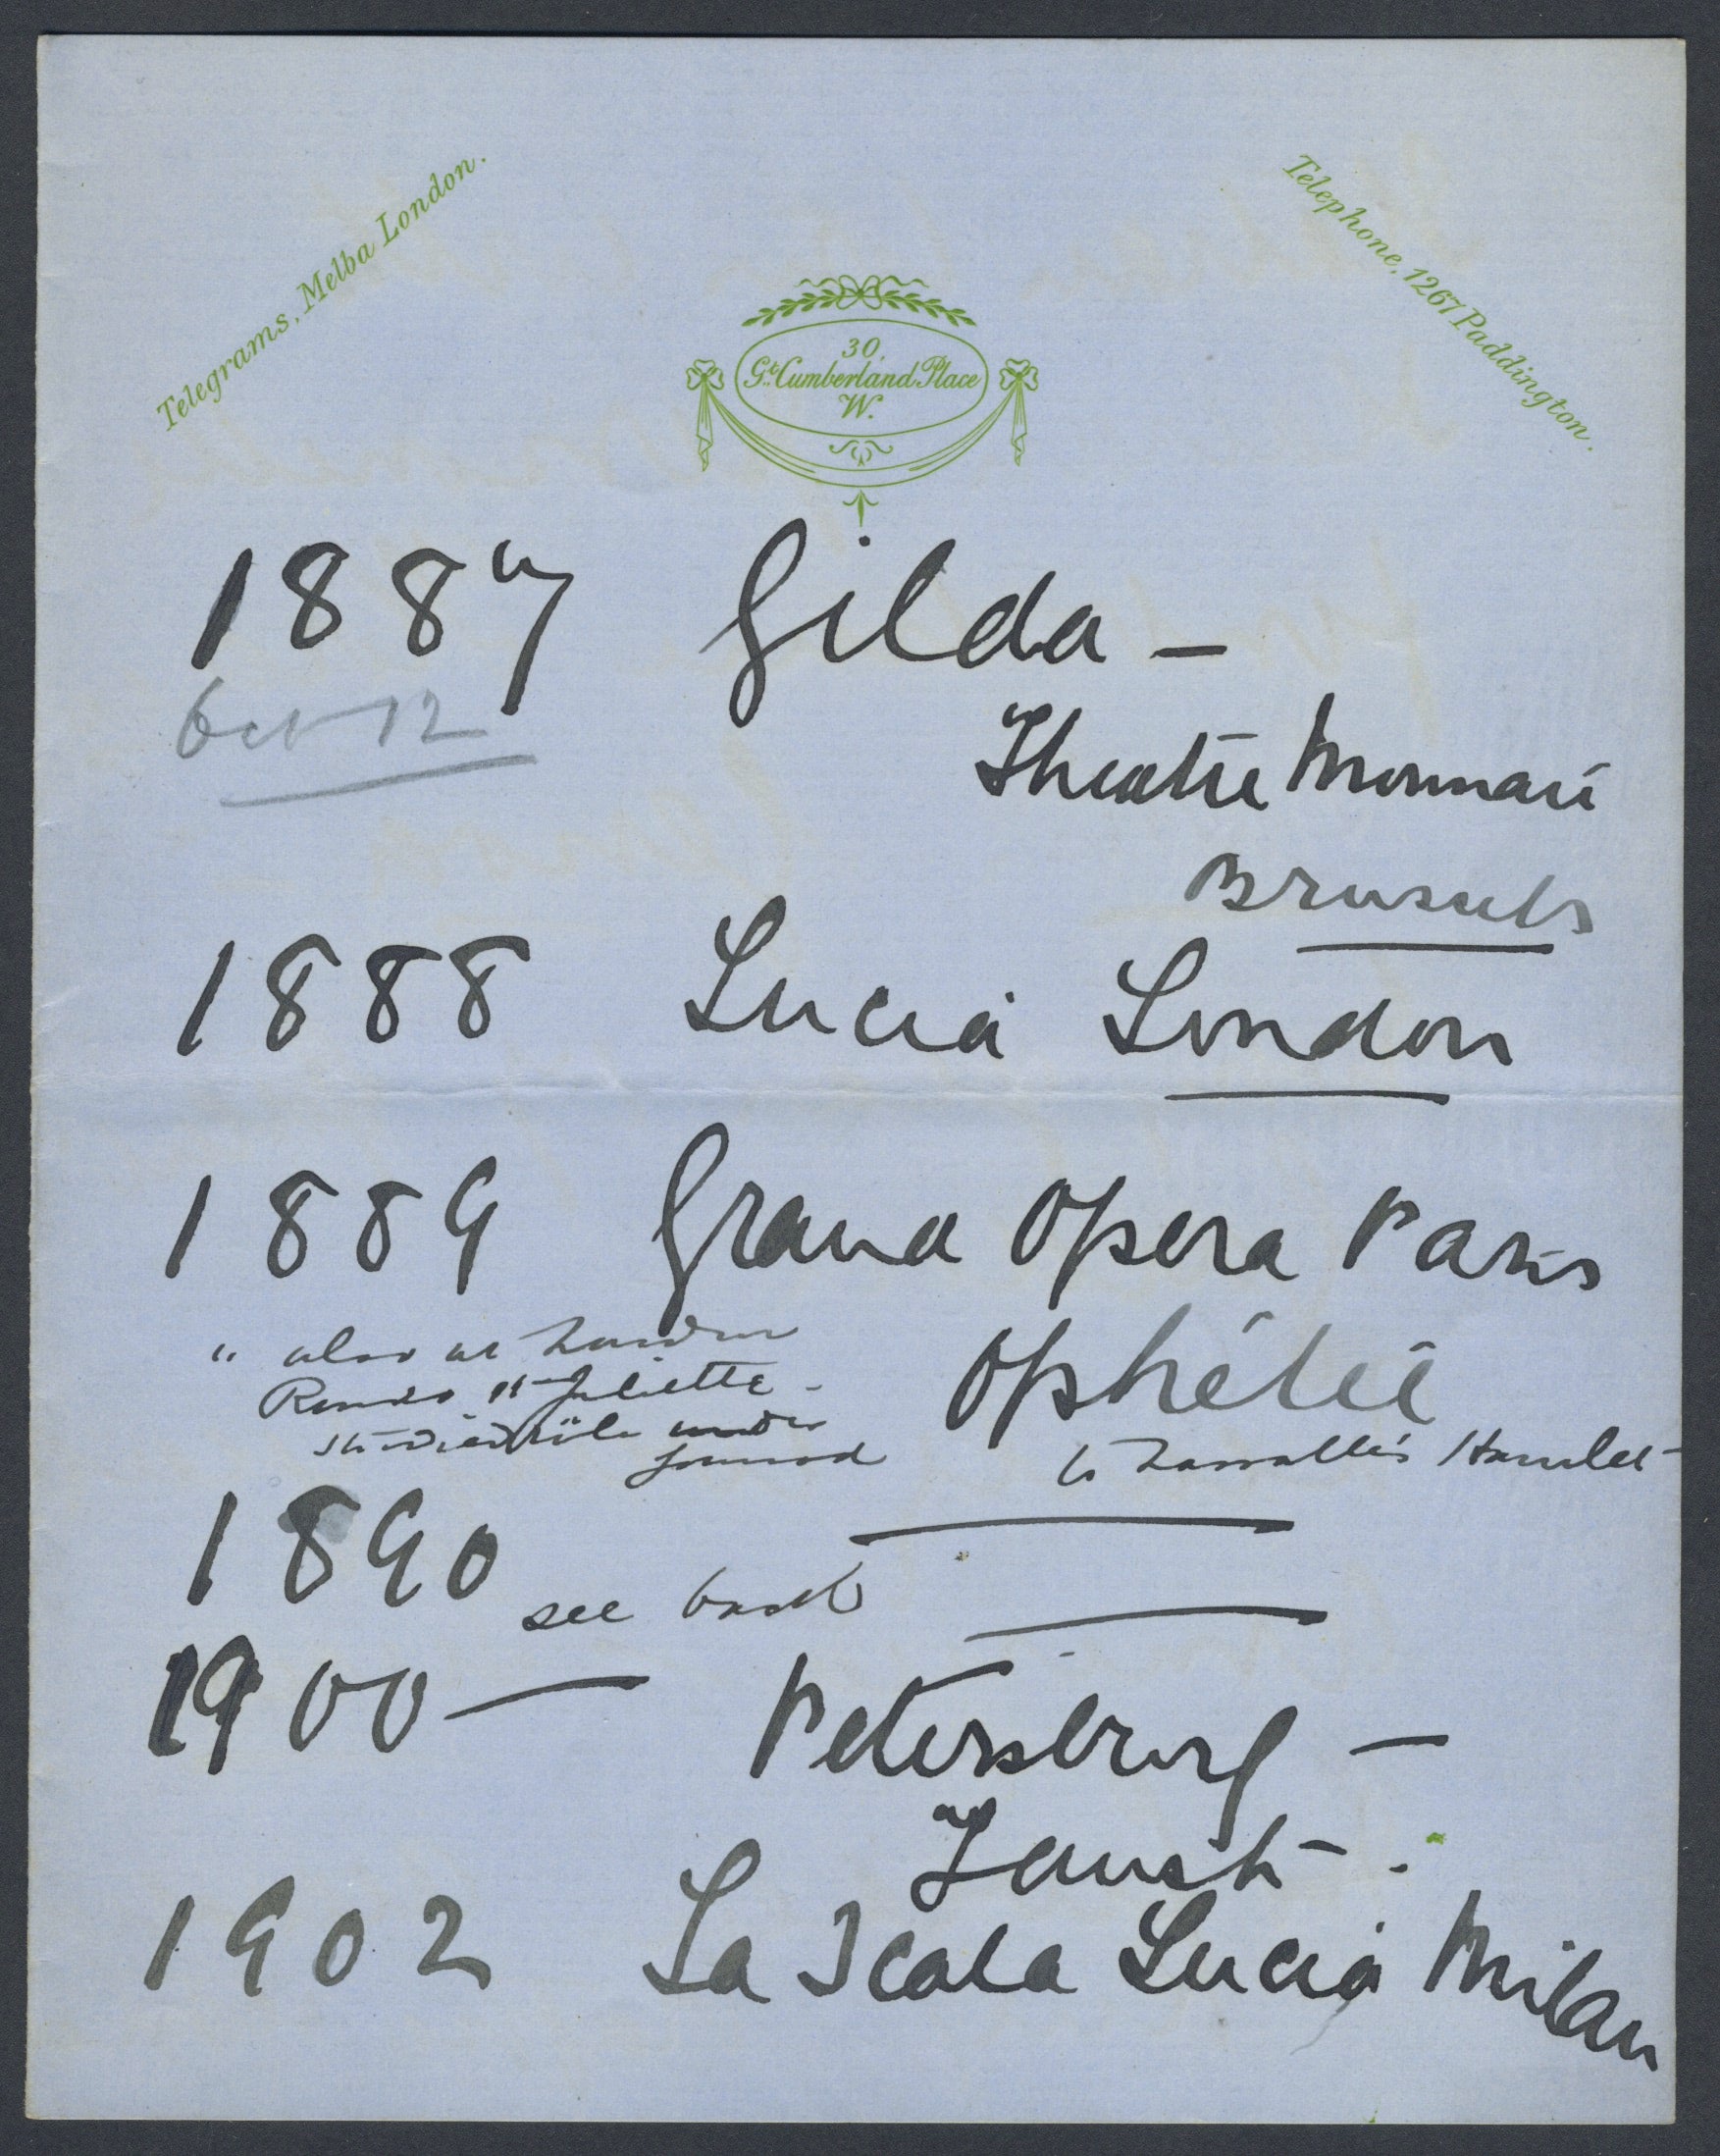 Telegrams, Melba London.
Telephone, 1267 Paddington.
30,
Gt. Cumberland Place
W.
1887 Gilda –
Oct 12
Theatre Monnaie
Brussels
1888 Lucia London
1889 Grand Opera Paris
" also at London
Romeo et Juliette –
studied rôle under
Gounod
Ophélie
to Lassalle's Hamlet
1890
see back
1900 — Petersburg –
Faust – .
1902 La Scala Lucia Milan